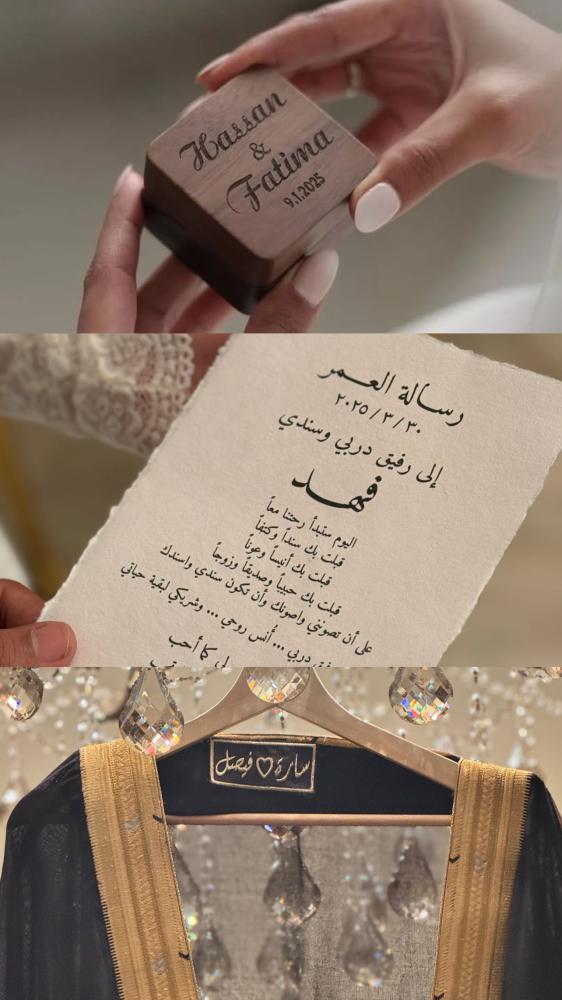 Hassan
&
Fatima
9.1.2025
رسالة العمر
٢٠٢٥ / ٣ / ٣٠
إلى رفيق دربي وسندي
فهد
اليوم سنبدأ رحلتنا معاً
قبلت بك سنداً وكتفاً
قبلت بك أنيساً وعوناً
قبلت بك حبيباً وصديقاً وزوجاً
على أن تصونني واصونك وأن تكون سندي واسندك
دربي ... أنس روحي ... وشريكي لبقية حياتي
كما أحب
سارة ♡ فيصل